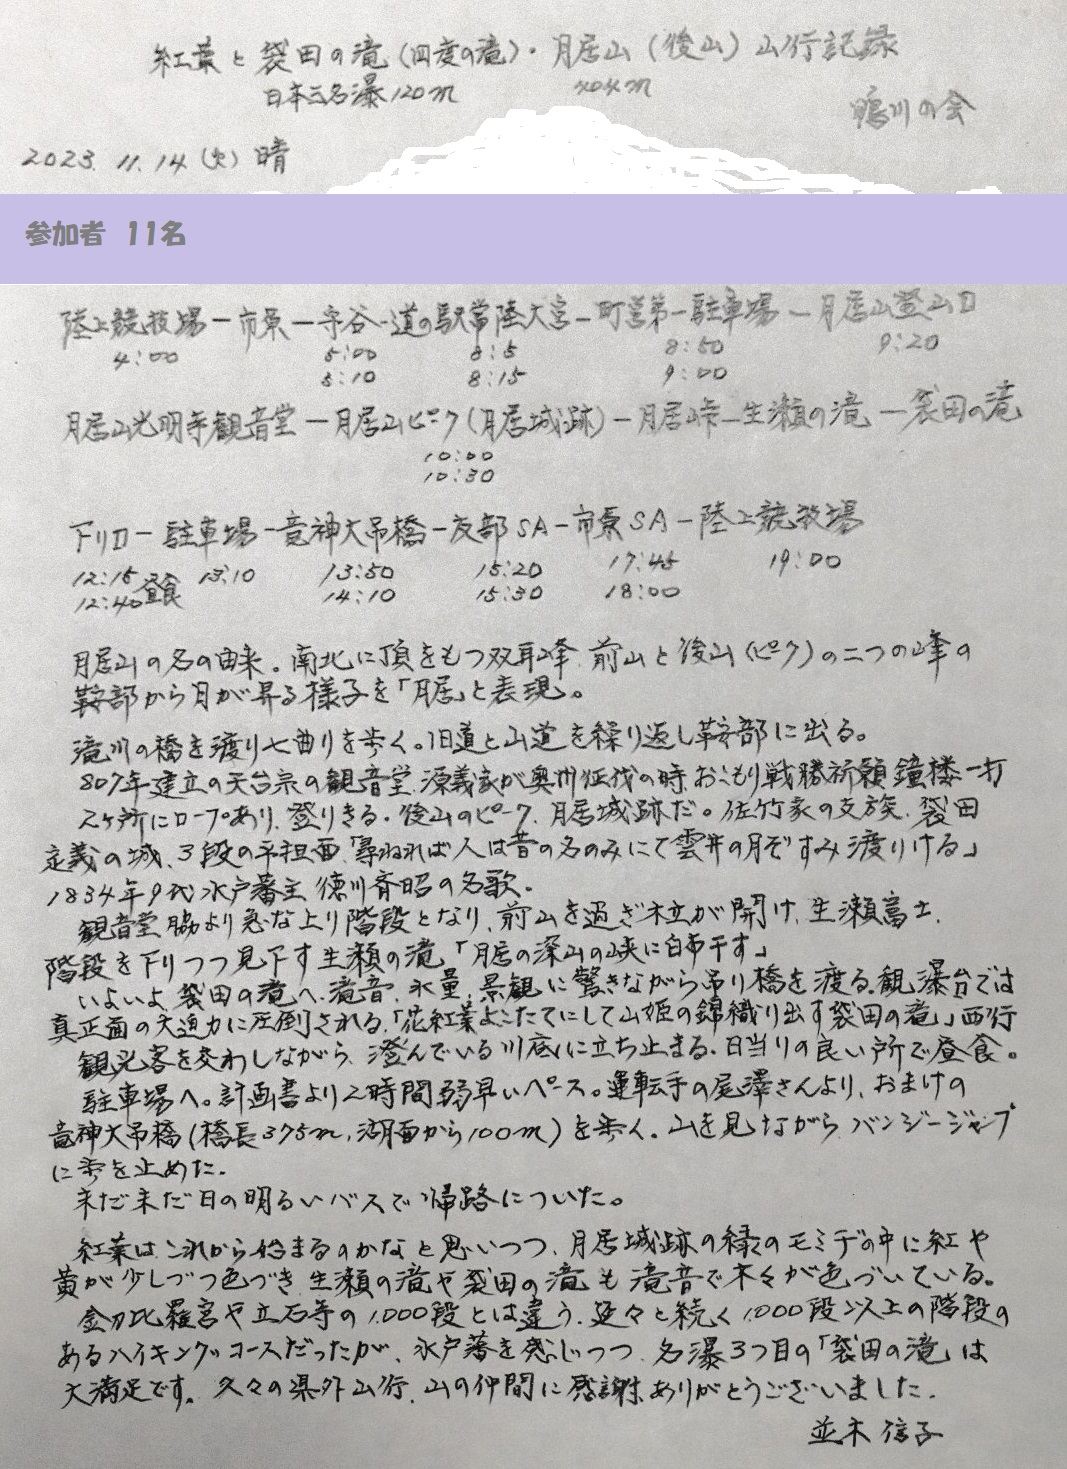 紅葉と袋田の滝(四度の滝)・月居山(後山)山行記録
日本三名瀑120m 404m
鴨川の会
2023. 11. 14 (火) 晴
参加者 11名
陸上競技場ー市原ー守谷ー道の駅常陸大宮ー町営第一駐車場ー月居山登山口
4:00 5:00 8:5 8:50 9:20
5:10 8:15 9:00
月居山光明寺観音堂ー月居山ピーク(月居城跡)ー月居峠ー生瀬の滝ー袋田の滝
10:00
10:30
下り口ー駐車場ー竜神大吊橋ー友部SAー市原SAー陸上競技場
12:15 昼食 13:10 13:50 15:20 17:45 19:00
12:40 14:10 15:30 18:00
月居山の名の由来。南北に頂をもつ双耳峰 前山と後山(ピーク)の二つの峰の
鞍部から月が昇る様子を「月居」と表現。
滝川の橋を渡り七曲りを歩く。旧道と山道を繰り返し鞍部に出る。
807年建立の天台宗の観音堂、源義家が奥州征伐の時おこもり戦勝祈願 鐘楼一打
2ヶ所にロープあり、登りきる。後山のピーク、月居城跡だ。佐竹家の支族、袋田
定義の城、3段の平坦面「尋ねれば人は昔の名のみにて雲井の月ぞすみ渡りける」
1834年9代水戸藩主 徳川斉昭の名歌。
観音堂脇より急な上り階段となり、前山を過ぎ木立が開け、生瀬富士、
階段を下りつつ見下す生瀬の滝「月居の深山の峡に白布干す」
いよいよ袋田の滝へ、滝音、水量、景観に驚きながら吊り橋を渡る、観瀑台では
真正面の大迫力に圧倒される、「花紅葉よこたてにして山姫の錦織り出す袋田の滝」西行
観光客を交わしながら、澄んでいる川底に立ち止まる、日当りの良い所で昼食。
駐車場へ。計画書より2時間弱早いペース。運転手の尾澤さんより、おまけの
竜神大吊橋(橋長375m、湖面から100m)を歩く。山を見ながらバンジージャンプ
に歩を止めた。
未だ未だ日の明るいバスで帰路についた。
紅葉はこれから始まるのかなと思いつつ、月居城跡の緑のモミヂの中に紅や
黄が少しづつ色づき 生瀬の滝や袋田の滝も滝音で木々が色づいている。
金刀比羅宮や立石寺の1,000段とは違う、延々と続く1,000段以上の階段の
あるハイキングコースだったが、水戸藩を感じつつ、名瀑3つ目の「袋田の滝」は
大満足です。久々の県外山行、山の仲間に感謝 ありがとうございました。
並木 信子